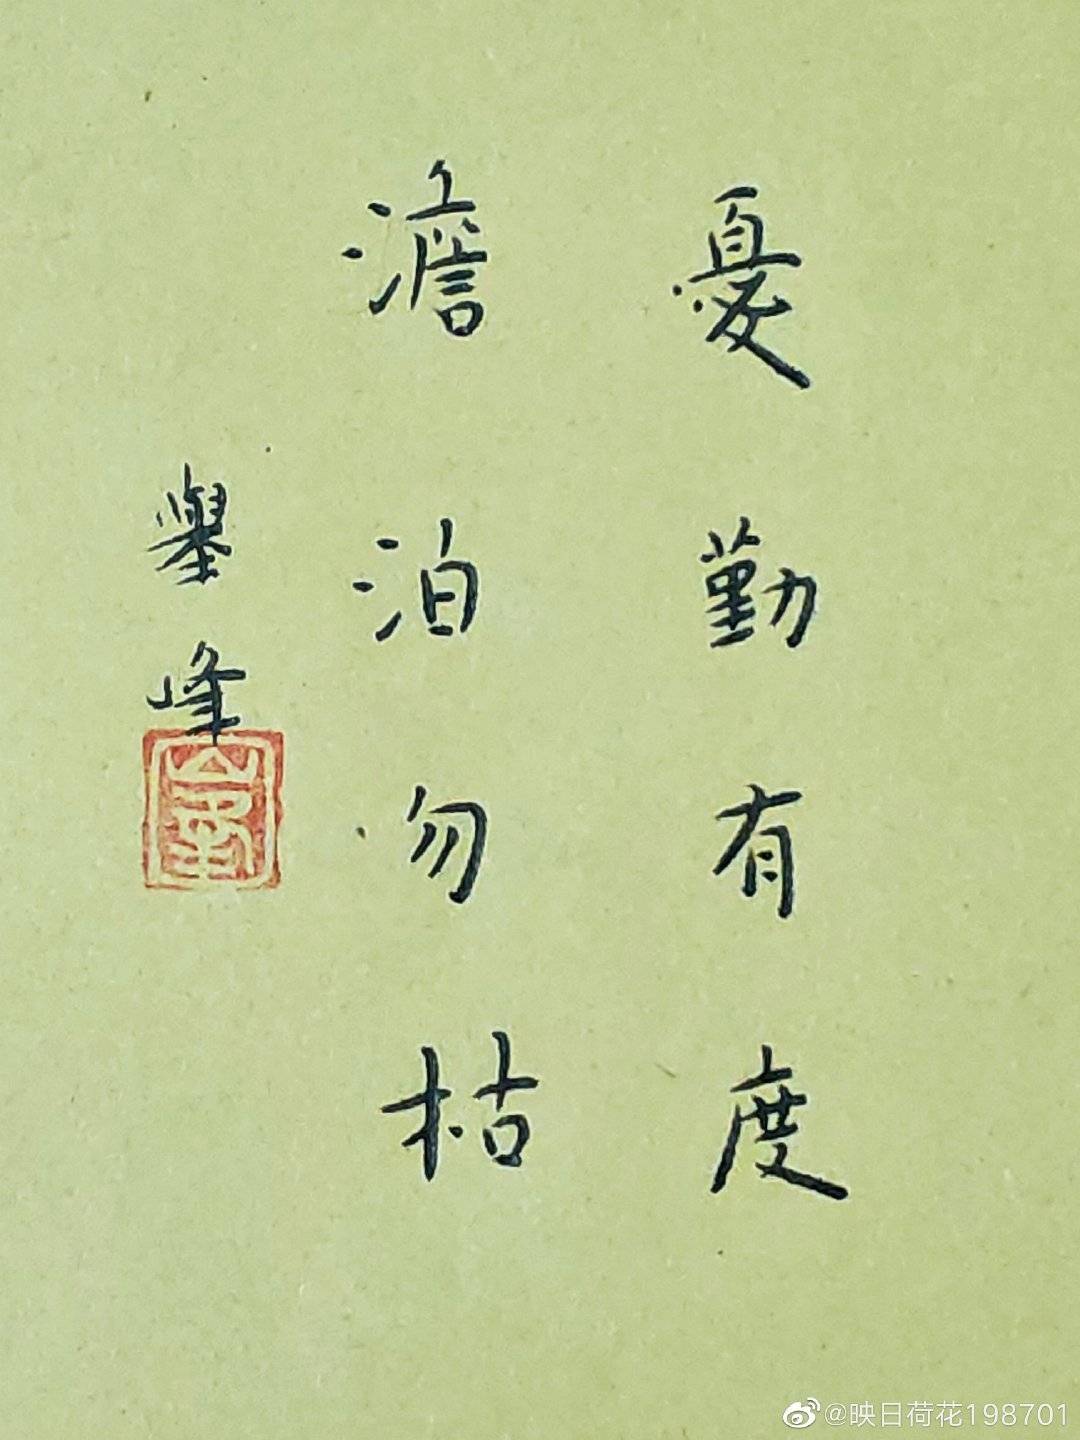 憂勤有度
澹泊勿枯
舉峰
@映日荷花198701